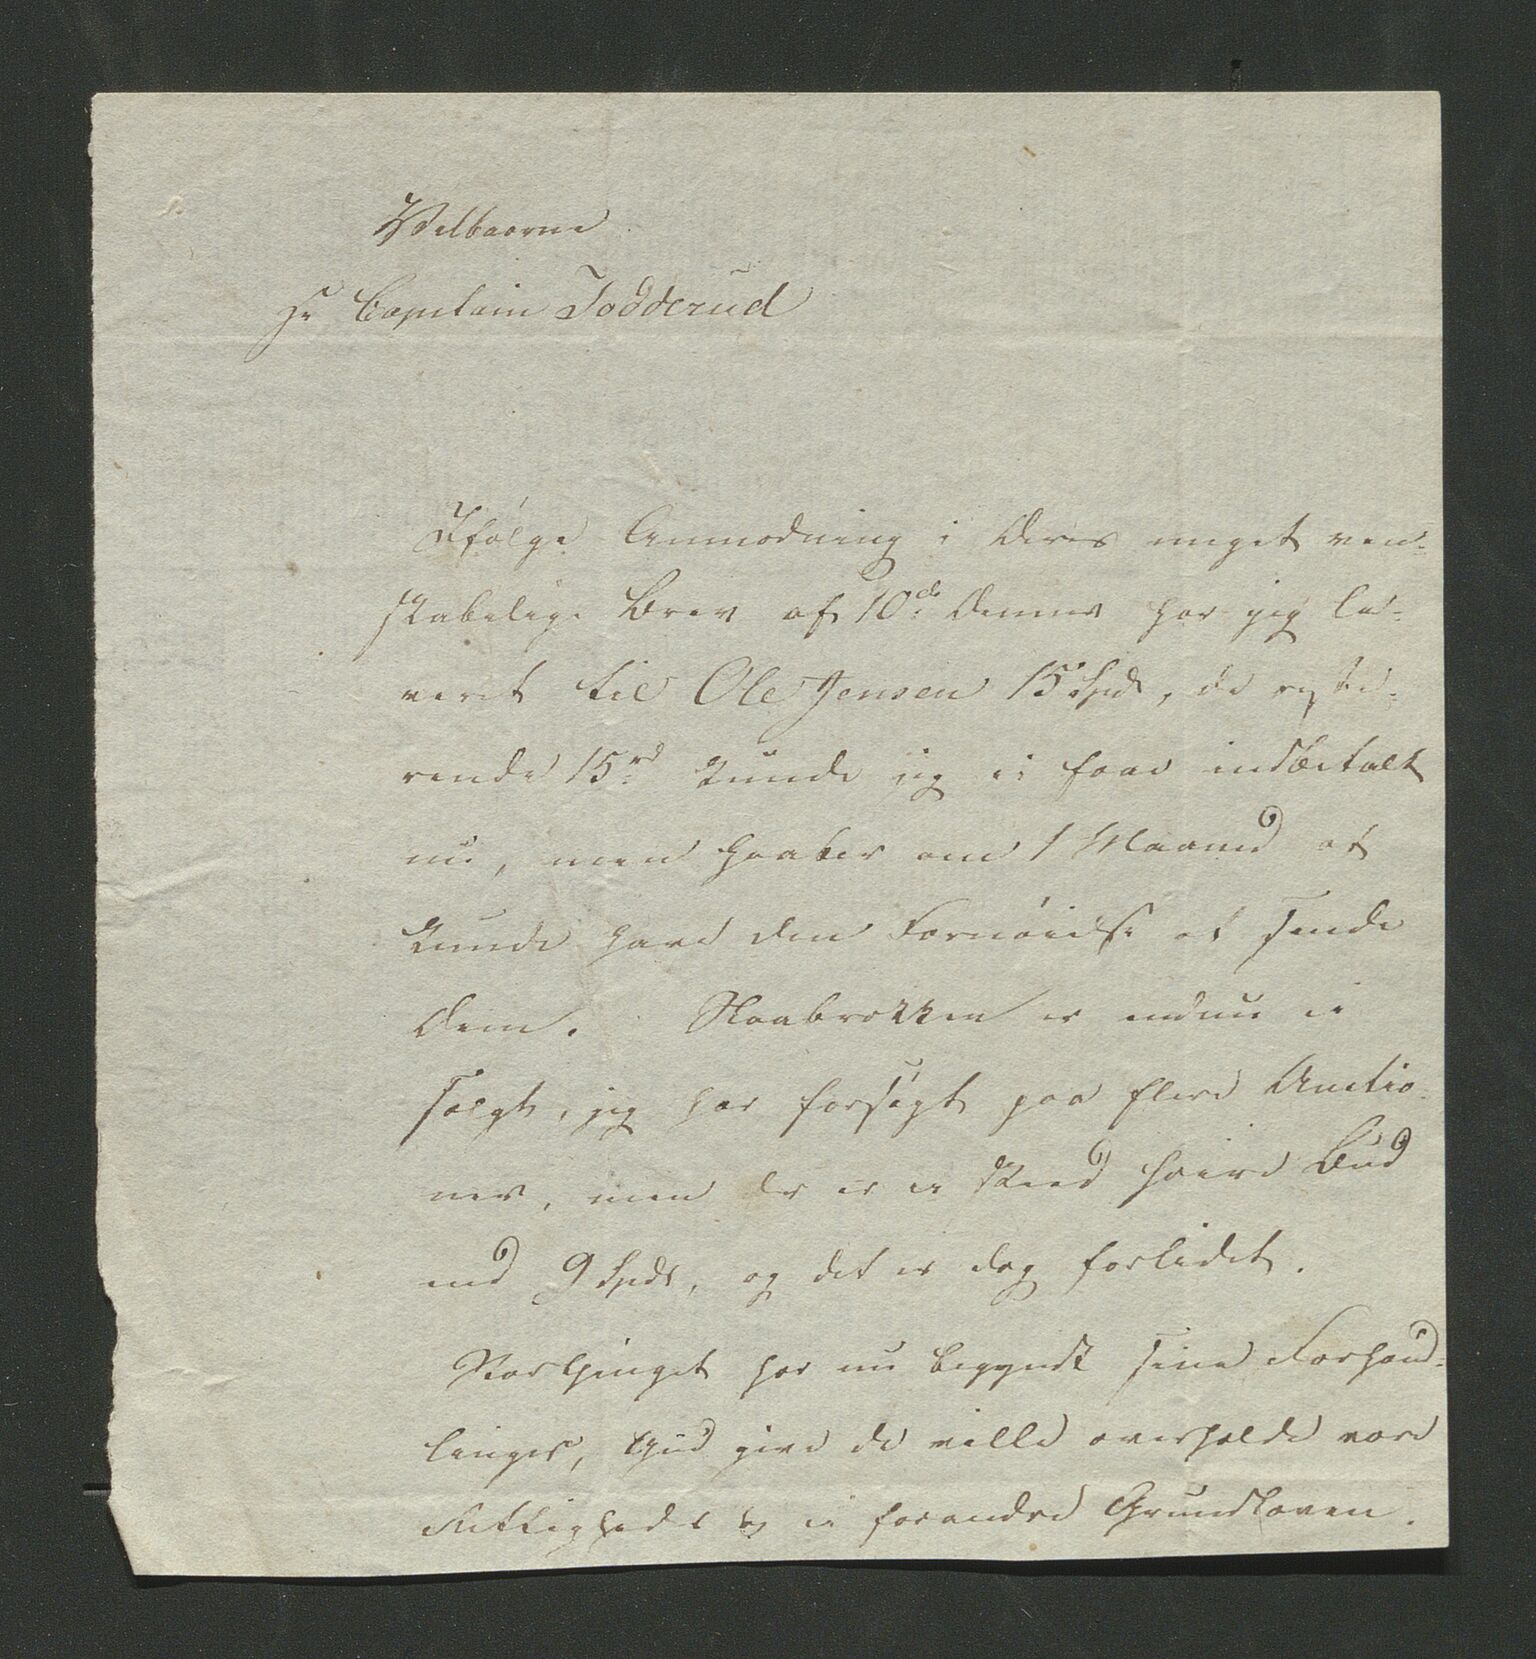 Velbaarne
Hr Capitain Todderud
Ifølge Anmodning i Deres meget ven-
skabelige Brev af 10de Dennes har jeg le-
veret til Ole Jensen 15 Spd, de reste-
rende 15 rd kunde jeg ei faae indbetalt
nu, men haaber om 1 Maaned at
kunde have den Fornøielse at sende
dem. Skabrokken er endnu ei
solgt, jeg har forsøgt paa flere Auctio-
ner, men der er ei skeed høiere Bud
end 9 Spds, og det er dog forlidet.
Storthinget har nu begyndt sine Forhand-
linger, Gud give de ville overholde vore
Rettigheder og ei forandre Grundloven.